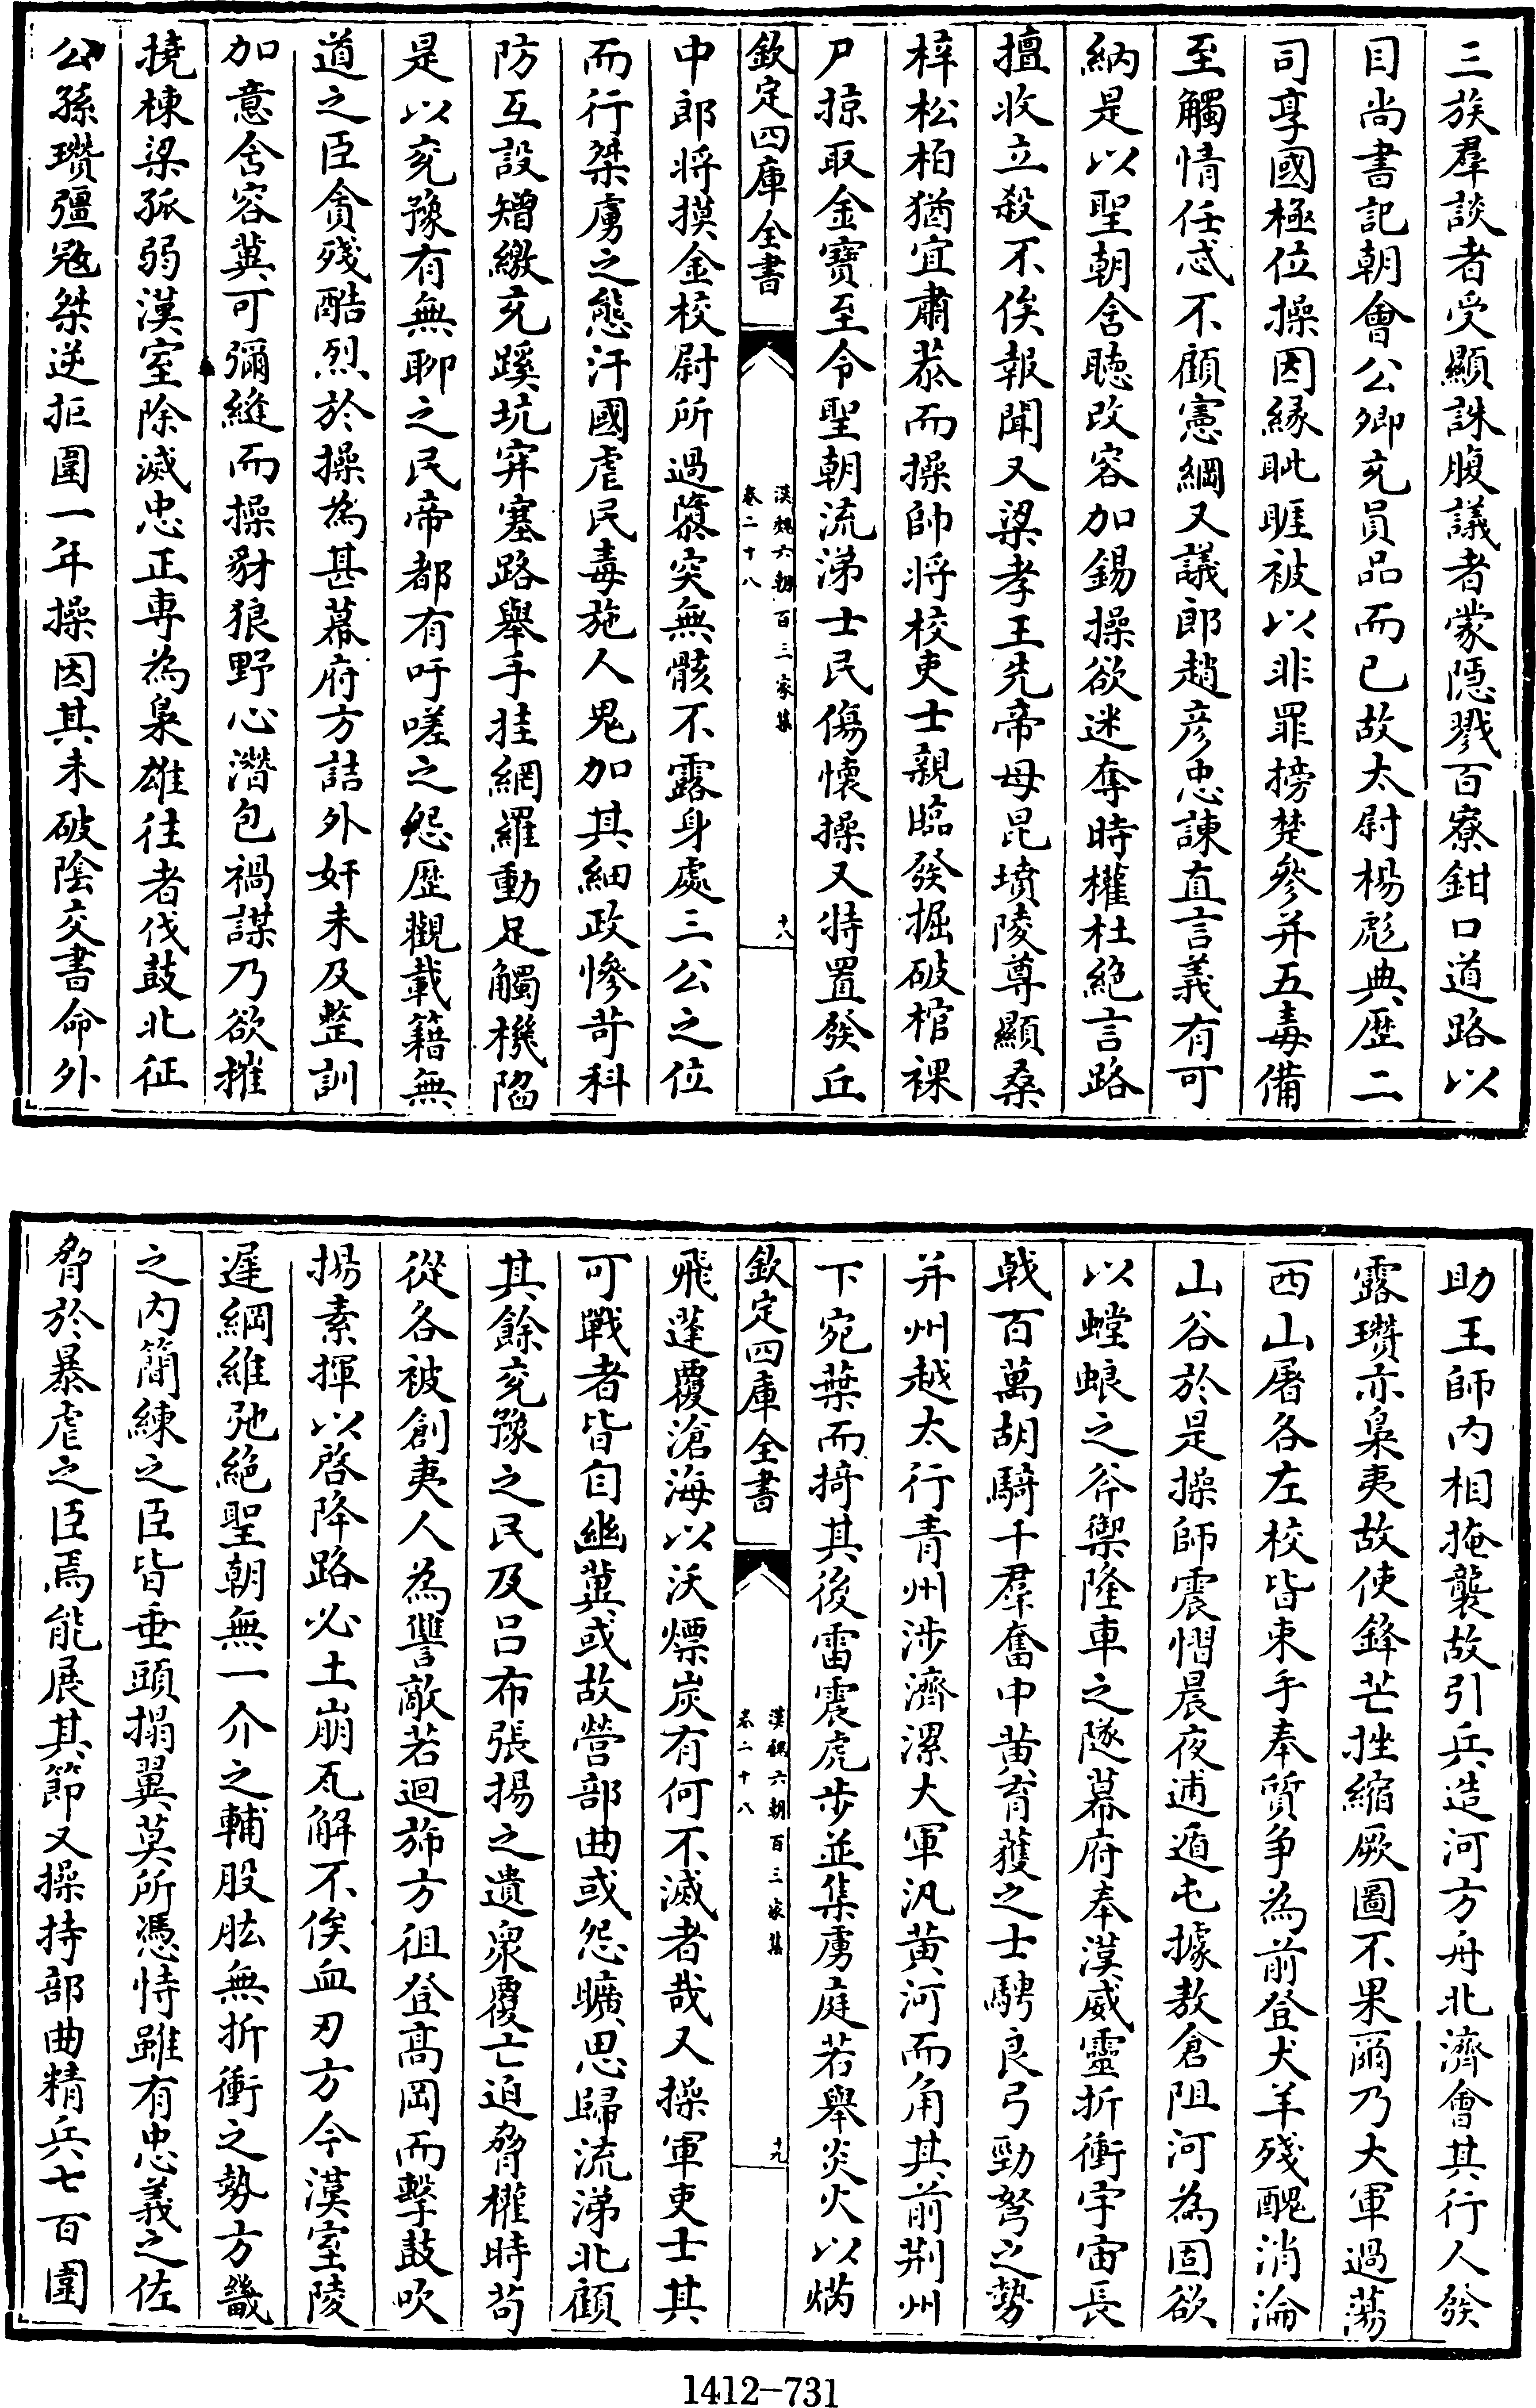 三族羣談者受顯誅腹議者蒙隠戮百寮鉗口道路以
目尚書記朝會公卿充員品而已故太尉楊彪典歴二
司享國極位操因緣眦睚被以非罪搒楚參并五毒備
至觸情任忒不顧憲綱又議郎趙彦忠諫直言義有可
納是以聖朝含聽改容加錫操欲迷奪時權杜絶言路
擅收立殺不俟報聞又梁孝王先帝母昆墳陵尊顯桑
梓松柏猶宜肅恭而操帥將校吏士親臨發掘破棺裸
尸掠取金寶至令聖朝流涕士民傷懷操又特置發丘
欽定四庫全書
漢魏六朝百三家集
卷二十八
十八
中郎將摸金校尉所過隳突無骸不露身處三公之位
而行桀虜之態汙國虐民毒施人鬼加其細政慘苛科
防互設矰繳充蹊坑穽塞路舉手挂網羅動足觸機陷
是以兖豫有無聊之民帝都有吁嗟之怨歴觀載籍無
道之臣貪殘酷烈於操為甚幕府方詰外奸未及整訓
加意含容冀可彌縫而操豺狼野心潛包禍謀乃欲摧
撓棟梁孤弱漢室除滅忠正専為梟雄往者伐鼓北征
公孫瓚彊冦桀逆拒圍一年操因其未破陰交書命外
助王師内相掩襲故引兵造河方舟北濟會其行人發
露瓚亦梟夷故使鋒芒挫縮厥圖不果爾乃大軍過蕩
西山屠各左校皆束手奉質争為前登犬羊殘醜消淪
山谷於是操師震慴晨夜逋遁屯據敖倉阻河為固欲
以螳蜋之斧禦隆車之隧幕府奉漢威靈折衝宇宙長
戟百萬胡騎千羣奮中黄育獲之士騁良弓勁弩之勢
并州越太行青州涉濟漯大軍汎黄河而角其前荆州
下宛葉而掎其後雷震虎步並集虜庭若舉炎火以焫
欽定四庫全書
漢魏六朝百三家集
卷二十八
十九
飛蓬覆滄海以沃熛炭有何不滅者哉又操軍吏士其
可戰者皆自幽冀或故營部曲或怨曠思歸流涕北顧
其餘兖豫之民及吕布張揚之遺衆覆亡迫脅權時苟
從各被創夷人為讐敵若迴斾方徂登髙岡而擊鼓吹
揚素揮以啓降路必土崩瓦解不俟血刃方今漢室陵
遲綱維弛絶聖朝無一介之輔股肱無折衝之勢方畿
之内簡練之臣皆垂頭搨翼莫所憑恃雖有忠義之佐
脅於暴虐之臣焉能展其節又操持部曲精兵七百圍
1412—731